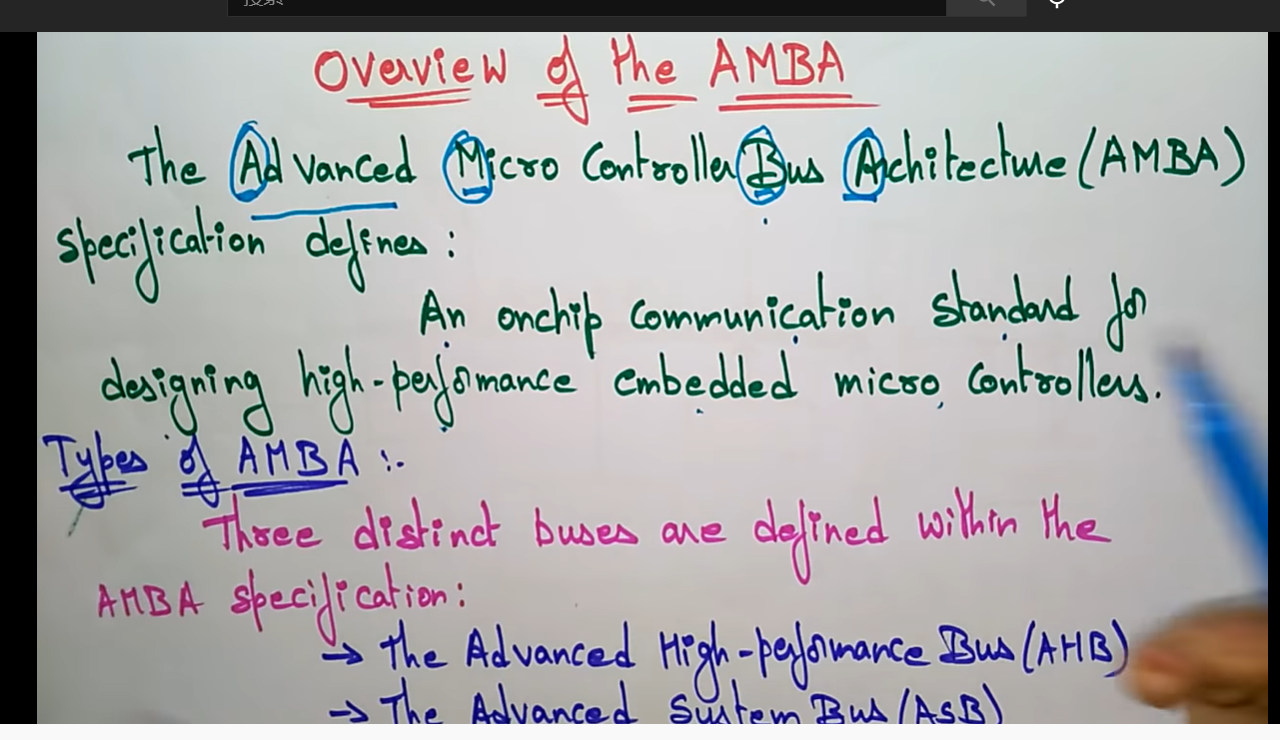 搜索
Overview of the AMBA
The Advanced Micro Controller Bus Architecture (AMBA)
specification defines :
An onchip communication standard for
designing high-performance embedded micro controllers.
Types of AMBA :-
Three distinct buses are defined within the
AMBA specification:
→ The Advanced High-performance Bus (AHB)
→ The Advanced System Bus (ASB)